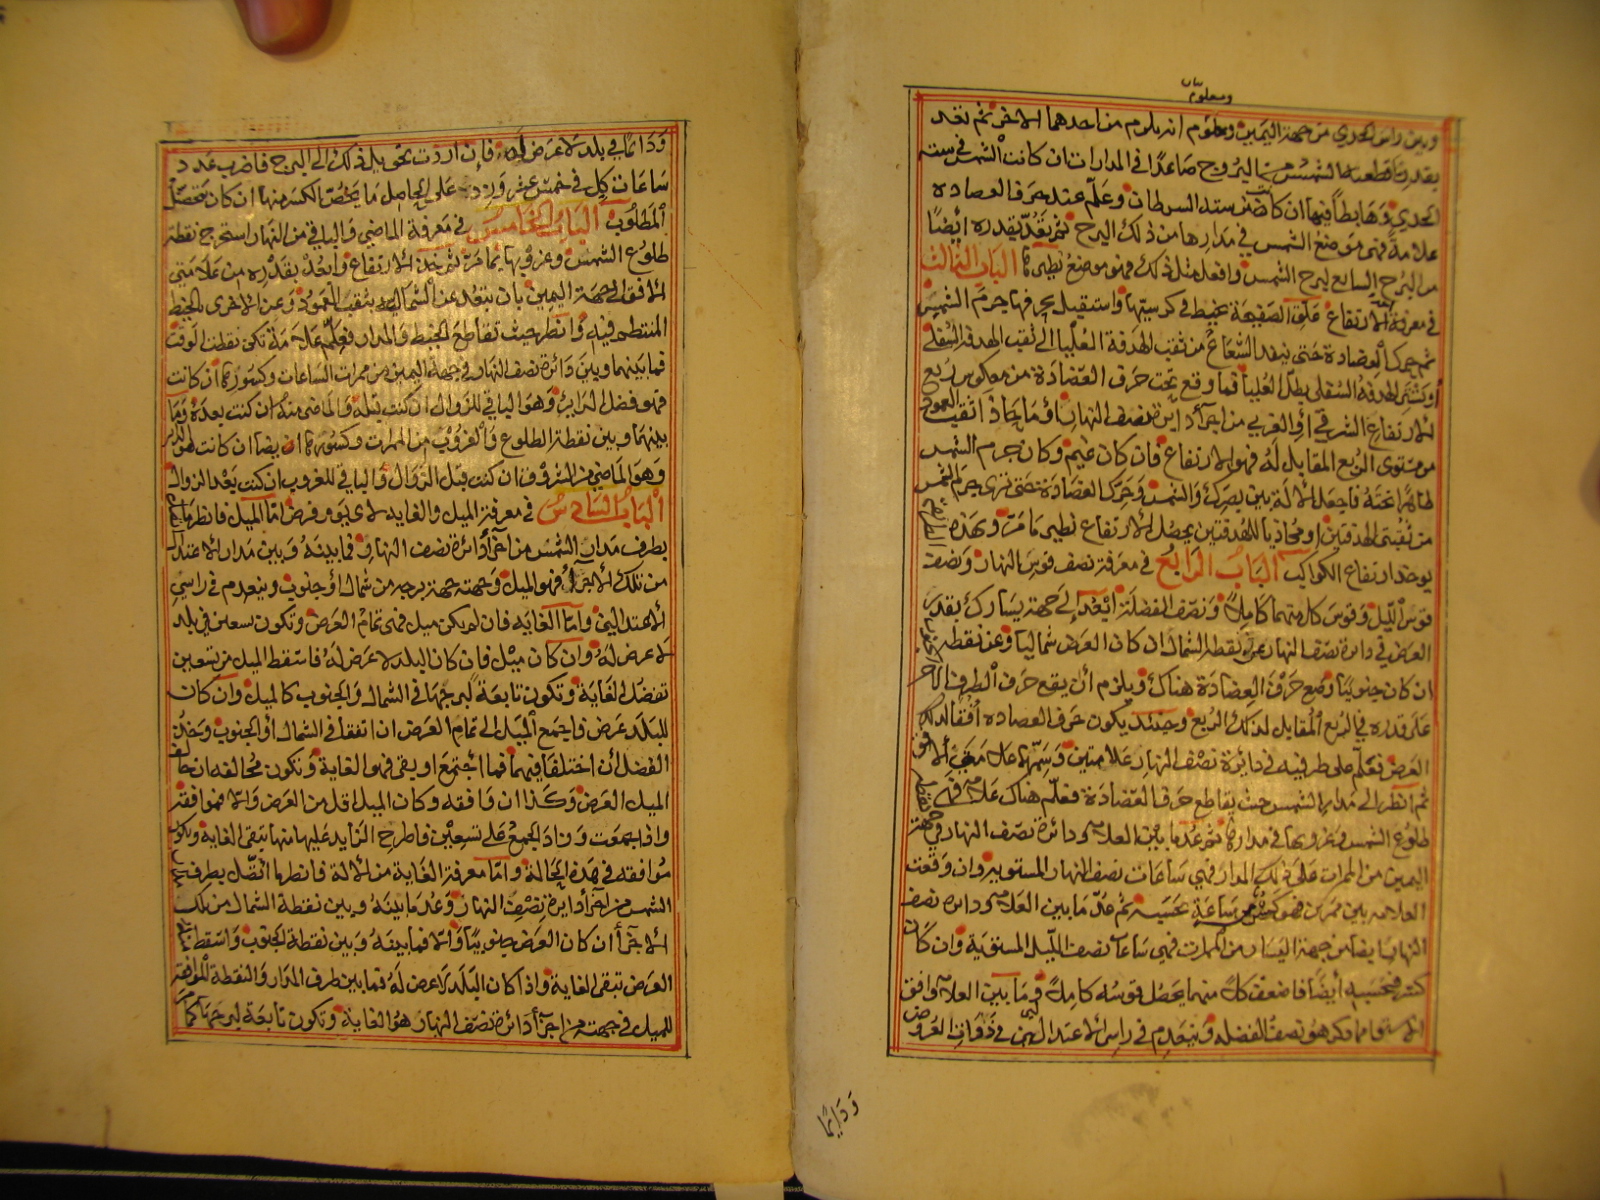 ومعلوم
وبين راس الجدي من جهة اليمين ومعلوم انه يلزم من احدهما الاخر ثم تعد
بقدر ما قطعت الشمس من البروج صاعدًا في المدارات ان كانت الشمس في ستة
الجدي وهابطًا فيها ان كانت في ستة السرطان وعلّم عند حرف العضادة
علامة فهي موضع الشمس في مدارها من ذلك البرج ثم تعدّ بقدره أيضًا
من البرج السابع لبرج الشمس وافعل مثل ذلك فهو موضع نظيرها الباب الثالث
في معرفة الارتفاع علّق الصفيحة بخيط في كرسيّها واستقبل بحرفها جرم الشمس
ثم حرك العضادة حتى ينفد الشعاع من ثقب الهدفة العليا الى ثقب الهدفة السفلى
أو تستتر الهدفة السفلى بظل العليا فما وقع تحت حرف العضادة من معكوس ربع
الارتفاع الشرقي أو الغربي من اجزاء دايرة نصف النهار او ما حاذاه
من مستوى الربع المقابل له فهو الارتفاع فان كان غيم وكان جرم الشمس
ظاهرا تحته فاجعل الالة بين بصرك والشمس وحرك العضادة حتى ترى جرم الشمس
من ثقبتي الهدفتين او محاذيا للهدفتين يحصل الارتفاع نظير ما مرّ وبهذه الطريقة
يوخذ ارتفاع الكواكب الباب الرابع في معرفة نصف قوس النهار ونصف
قوس الليل وقوس كل منهما كاملًا ونصف الفضلة ابْعُد إلى جهة يسارك بقدر
العرض في دائرة نصف النهار عن نقطة الشمال ان كان العرض شماليا وعن نقطة الجنوب
ان كان جنوبيا وضع حرف العضادة هناك ويلزم أن يقع حرف الطرف الاخر
على قدره في الربع المقابل لذلك الربع وحينئذ يكون حرف العضادة أفقا لذلك
العرض فعلّم على طرفيه في دائرة نصف النهار علامتين وسمّهما علامتي الافق
ثم انظر الى مدار الشمس حيث يقاطع حرف العضادة فعلّم هناك علامة فهي نقطة
طلوع الشمس وغروبها في مدارها ثم عدّ ما بين العلامة ودائرة نصف النهار في جهة
اليمين من الممرات على ذلك المدار فهي ساعات نصف النهار المستوية وان وقعت
العلامة بين ممرين فهو كسر من ساعة بحسبه ثم عدّ ما بين العلامة ودائرة نصف
النهار ايضا من جهة اليسار من الممرات فهي ساعات نصف الليل المستوية وان كان
كسر فبحسبه أيضًا فاضعف كلًا منهما يحصل قوسه كاملًا وما بين العلامة وافق
الاستواء مما ذكر هو نصف الفضلة وينعدم في راس الاعتدالين في ذوات العروض
ودائمًا
ودائمًا في بلد لا عرض له فإن اردت تحويل ذلك الى الدرج فاضرب عدد
ساعات كلٍ في خمس عشر وزد على الحاصل ما يخص الكسر منها ان كان يحصل
المطلوب الباب الخامس في معرفة الماضي والباقي من النهار استخرج نقطة
طلوع الشمس وغروبها بما مرّ ثم خذ الارتفاع وابعُد بقدره من علامتي
الافق الى جهة اليمين بان تبعد عن الشمالية بثقب العمود وعن الاخرى بالخيط
المنتظم فيه وانظر حيث تقاطع الخيط والمدار فعلّم علامة تكن نقطة الوقت
فما بينهما وبين دائرة نصف النهار في جهة اليمين من ممرات الساعات وكسورها ان كانت
فهو فضل الداير وهو الباقي للزوال ان كنت قبله والماضي منه ان كنت بعده وما
بينهما وبين نقطة الطلوع والغروب من الممرات وكسورها ايضا ان كانت هو الداير
وهو الماضي من الشروق ان كنت قبل الزوال والباقي للغروب ان كنت بعد الزوال
الباب السادس في معرفة الميل والغاية اما الميل فانظر ما
بطرف مدار الشمس من اجزاء دائرة نصف النهار فما بينه وبين مدار الاعتدال
من تلك الاجزاء فهو الميل وجهته جهة برجه من شمال أو جنوب وينعدم في راسي
الاعتدالين وأما الغاية فان لم يكن ميل فهي تمام العرض وتكون تسعين في بلد
لا عرض له وان كان ميل فان كان البلد لا عرض له فاسقط الميل من تسعين
تفضل الغاية وتكون تابعة لبرجها في الشمال والجنوب كالميل وان كان
للبلد عرض فاجمع الميل إلى تمام العرض ان اتفقا في الشمال أو الجنوب وخذ
الفضل ان اختلفا فيهما فما اجتمع او بقي فهو الغاية وتكون مخالفه ان خالف
الميل العرض وكذا ان وافقه وكان الميل اقل من العرض والا فموافقة
واذا جمعت وزاد الجمع على تسعين فاطرح الزايد عليها منها تبقى الغاية وتكون
موافقه في هذه الحالة وأما معرفة الغاية من الالة فانظر ما اتصل بطرف
الشمس من اجزاء دايرة نصف النهار وعُد ما بينه وبين نقطة الشمال من تلك
الاجزاء ان كان العرض جنوبيًا والا فما بينه وبين نقطة الجنوب واسقط
العرض تبقى الغاية واذا كان البلد لا عرض له فما بين طرف المدار والنقطة الموافقة
للميل في جهته من اجزاء دائرة نصف النهار هو الغاية وتكون تابعة لبرجها كما